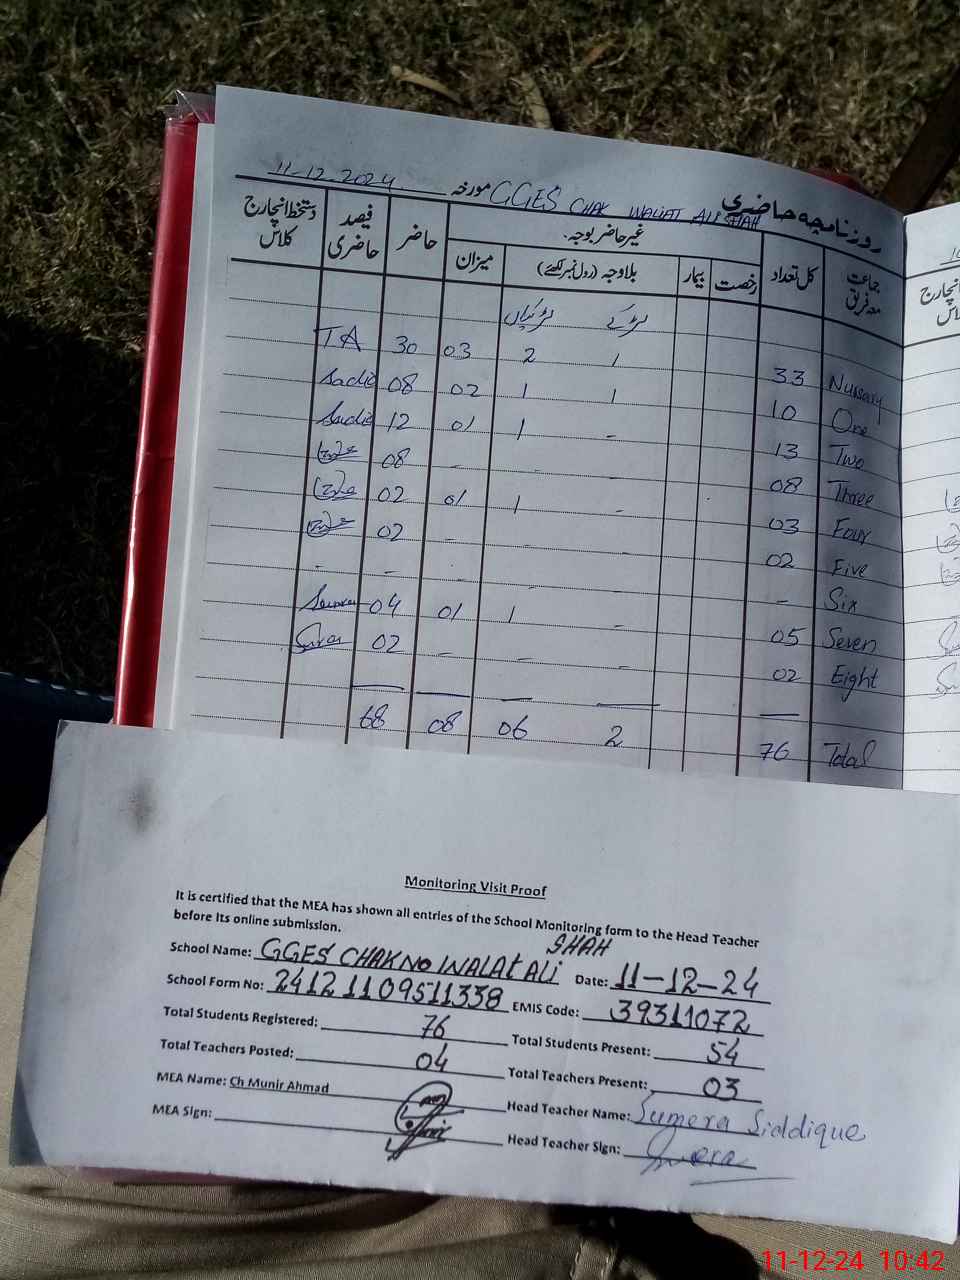 روزنامچہ حاضری GGES CHAK WALIAT ALI SHAH مورخہ 11-12-2024
جماعت معہ فریق کل تعداد غیر حاضر بوجہ۔ حاضر فیصد حاضری دستخط انچارج کلاس
رخصت بیمار بلاوجہ (رول نمبر لکھئے) میزان
لڑکے لڑکیاں
Nursary 33 1 2 03 30 TA
One 10 1 1 02 08 Sadia
Two 13 - 1 01 12 Sadia
Three 08 - - 08
Four 03 - 1 01 02
Five 02 - - 02
Six - - - -
Seven 05 - 1 01 04
Eight 02 - - - 02
Total 76 2 06 08 68
انچارج
Monitoring Visit Proof
It is certified that the MEA has shown all entries of the School Monitoring form to the Head Teacher
before its online submission.
School Name: GGES CHAK NO INALAT ALI SHAH Date: 11-12-24
School Form No: 2412 1109511338 EMIS Code: 39311072
Total Students Registered: 76 Total Students Present: 54
Total Teachers Posted: 04 Total Teachers Present: 03
MEA Name: Ch Munir Ahmad Head Teacher Name: Sumera Siddique
MEA Sign: Head Teacher Sign: Sumera
11-12-24 10:42